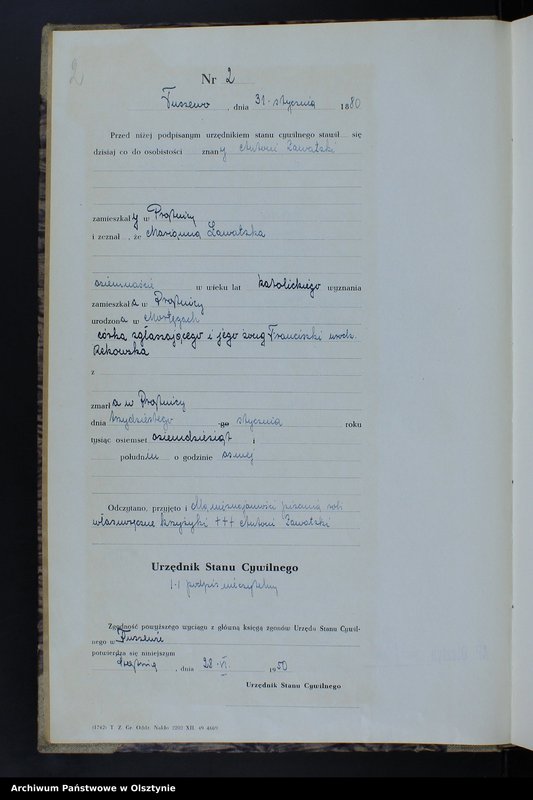 2
Nr 2
Tuszewo, dnia 31. stycznia 1880
Przed niżej podpisanym urzędnikiem stanu cywilnego stawił się
dzisiaj co do osobistości znany Antoni Zawatzki
zamieszkały w
i zeznał, że Marianna Zawatzka
osiemnaście w wieku lat katolickiego wyznania
zamieszkała w
urodzona w Mortęgach
córka zgłaszającego i jego żony Franciszki urodz.
Rekowska
z
zmarła w
dnia trzydziestego -go stycznia roku
tysiąc osiemset osiemdziesiąt i
południu o godzinie ósmej
Odczytano, przyjęto i
własnoręczne krzyżyki +++ Antoni Zawatzki
Urzędnik Stanu Cywilnego
/-/ podpis nieczytelny
Zgodność powyższego wyciągu z główną księgą zgonów Urzędu Stanu Cywil-
nego w Tuszewie
potwierdza się niniejszym
, dnia 28. VI. 1950
Urzędnik Stanu Cywilnego
(1742) T. Z. Gr. Oddz. Nakło 2202 XII. 49 4869
Archiwum Państwowe w Olsztynie